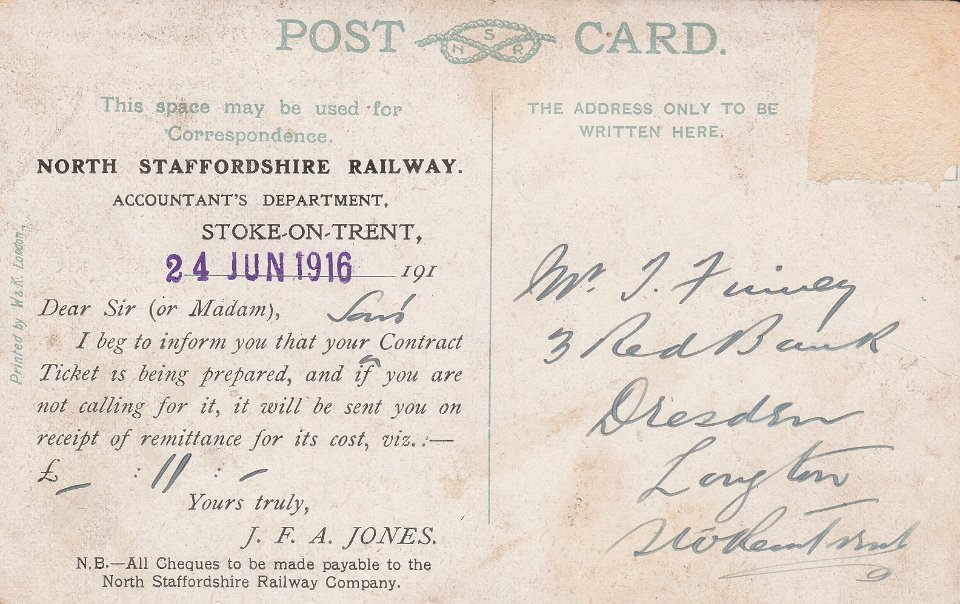 POST CARD.
N S R
This space may be used for
Correspondence.
NORTH STAFFORDSHIRE RAILWAY.
ACCOUNTANT'S DEPARTMENT,
STOKE-ON-TRENT,
24 JUN 1916 191
Dear Sir (or Madam),
Son's
I beg to inform you that your Contract
Ticket is being prepared, and if you are
not calling for it, it will be sent you on
receipt of remittance for its cost, viz.:—
£ – : 11 : –
Yours truly,
J. F. A. JONES.
N.B.—All Cheques to be made payable to the
North Staffordshire Railway Company.
Printed by W & K. London.
THE ADDRESS ONLY TO BE
WRITTEN HERE.
Mr. J. Finney
3 Red Bank
Dresden
Longton
Stoke on Trent